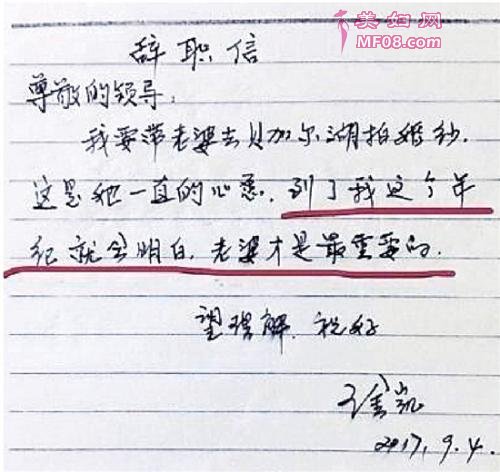 美妇网
MF08.com
辞职信
尊敬的领导:
我要带老婆去贝加尔湖拍婚纱.
这是她一直的心愿.到了我这个年
纪就会明白.老婆才是最重要的.
望理解.祝好
徐凯
2017.9.4.